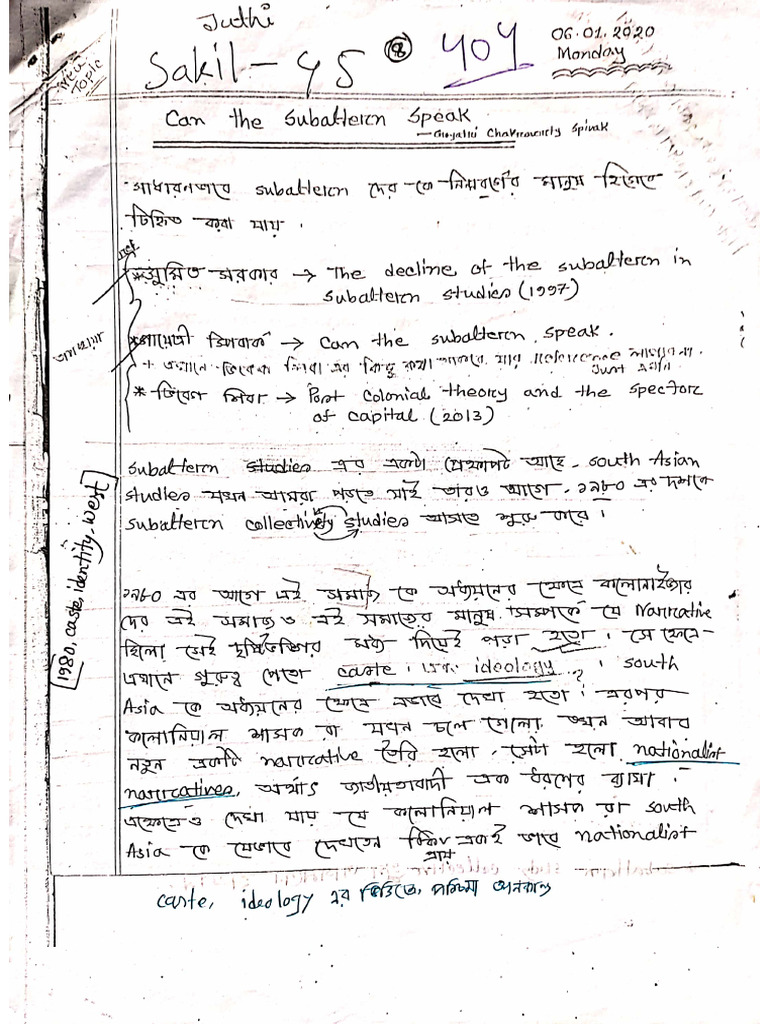 Juthi
Sakil - 45 404
06.01.2020
Monday
New
Topic
Can the Subaltern Speak
— Gayatri Chakravorty Spivak
সাধারনভাবে subaltern দের কে নিম্নবর্গের মানুষ হিসেবে
চিহ্নিত করা যায়।
* সুমিত সরকার → The decline of the subaltern in
subaltern studies (1997)
* গায়েত্রী স্পিবাক → Can the subaltern speak.
+ এখানে বিবেক এর কিছু কথা থাকবে, যার Reference লাগবে না. Just
* বিবেক শিবা → Post colonial theory and the specter
of capital (2013)
subaltern studies এর একটা প্রেক্ষাপট আছে. south Asian
studies যখন আমরা পড়তে যাই তারও আগে. ১৯৮০ এর দশকে
subaltern collectively studies আসতে শুরু করে।
1980, caste, identity, west
১৯৮০ এর আগে এই সমাজ কে অধ্যয়নের ক্ষেত্রে কলোনাইজার
দের এই সমাজ ও এই সমাজের মানুষ সম্পর্কে যে Narrative
ছিলো সেই দৃষ্টিভঙ্গির মধ্য দিয়েই পড়া হতো। সে ক্ষেত্রে-
এখানে গুরুত্ব পেতো caste এবং ideology। south
Asia কে অধ্যয়নের ক্ষেত্রে এভাবে দেখা হতো। এরপর
কলোনিয়াল শাসক রা যখন চলে গেলো তখন আবার
নতুন একটা narrative তৈরি হলো. সেটা হলো nationalist
narratives, অর্থাৎ জাতীয়তাবাদী এক ধরণের ব্যাখ্যা।
এক্ষেত্রেও দেখা যায় যে কলোনিয়াল শাসক রা south
Asia কে যেভাবে দেখতেন ঠিক প্রায় একই ভাবে nationalist
caste, ideology এর ভিত্তিতে, পশ্চিমা